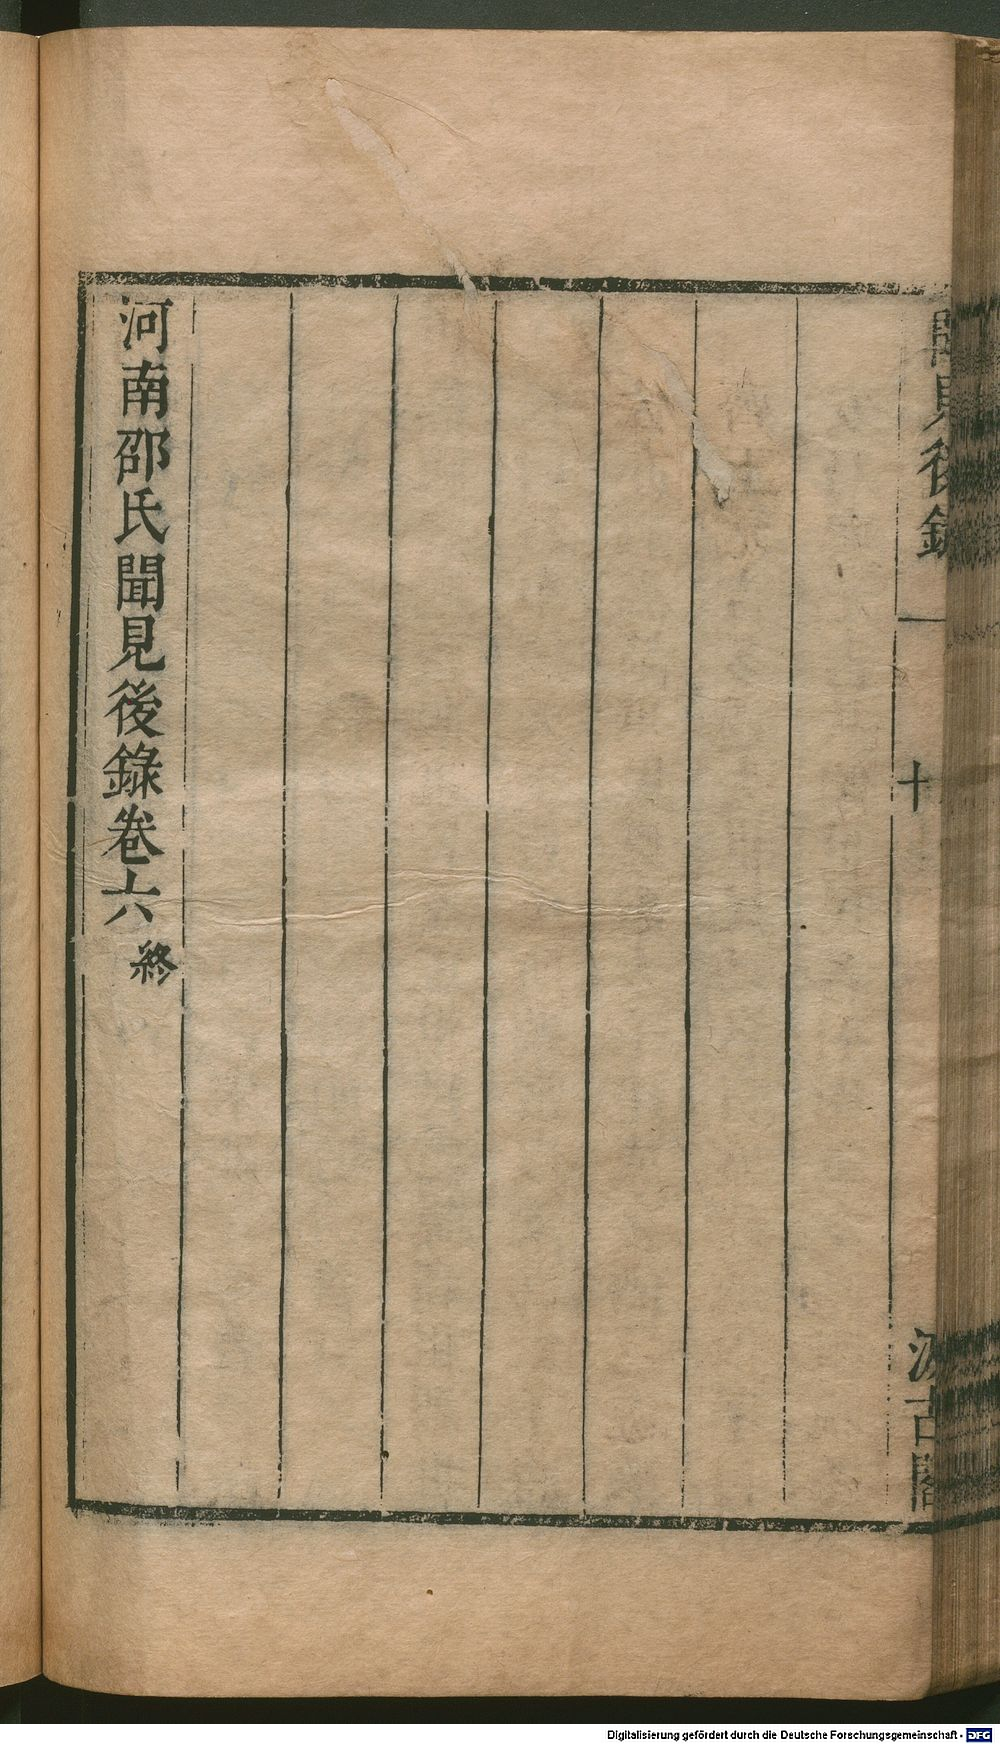 聞見後錄
十
汲古閣
河南邵氏聞見後錄卷六終
Digitalisierung gefördert durch die Deutsche Forschungsgemeinschaft - DFG